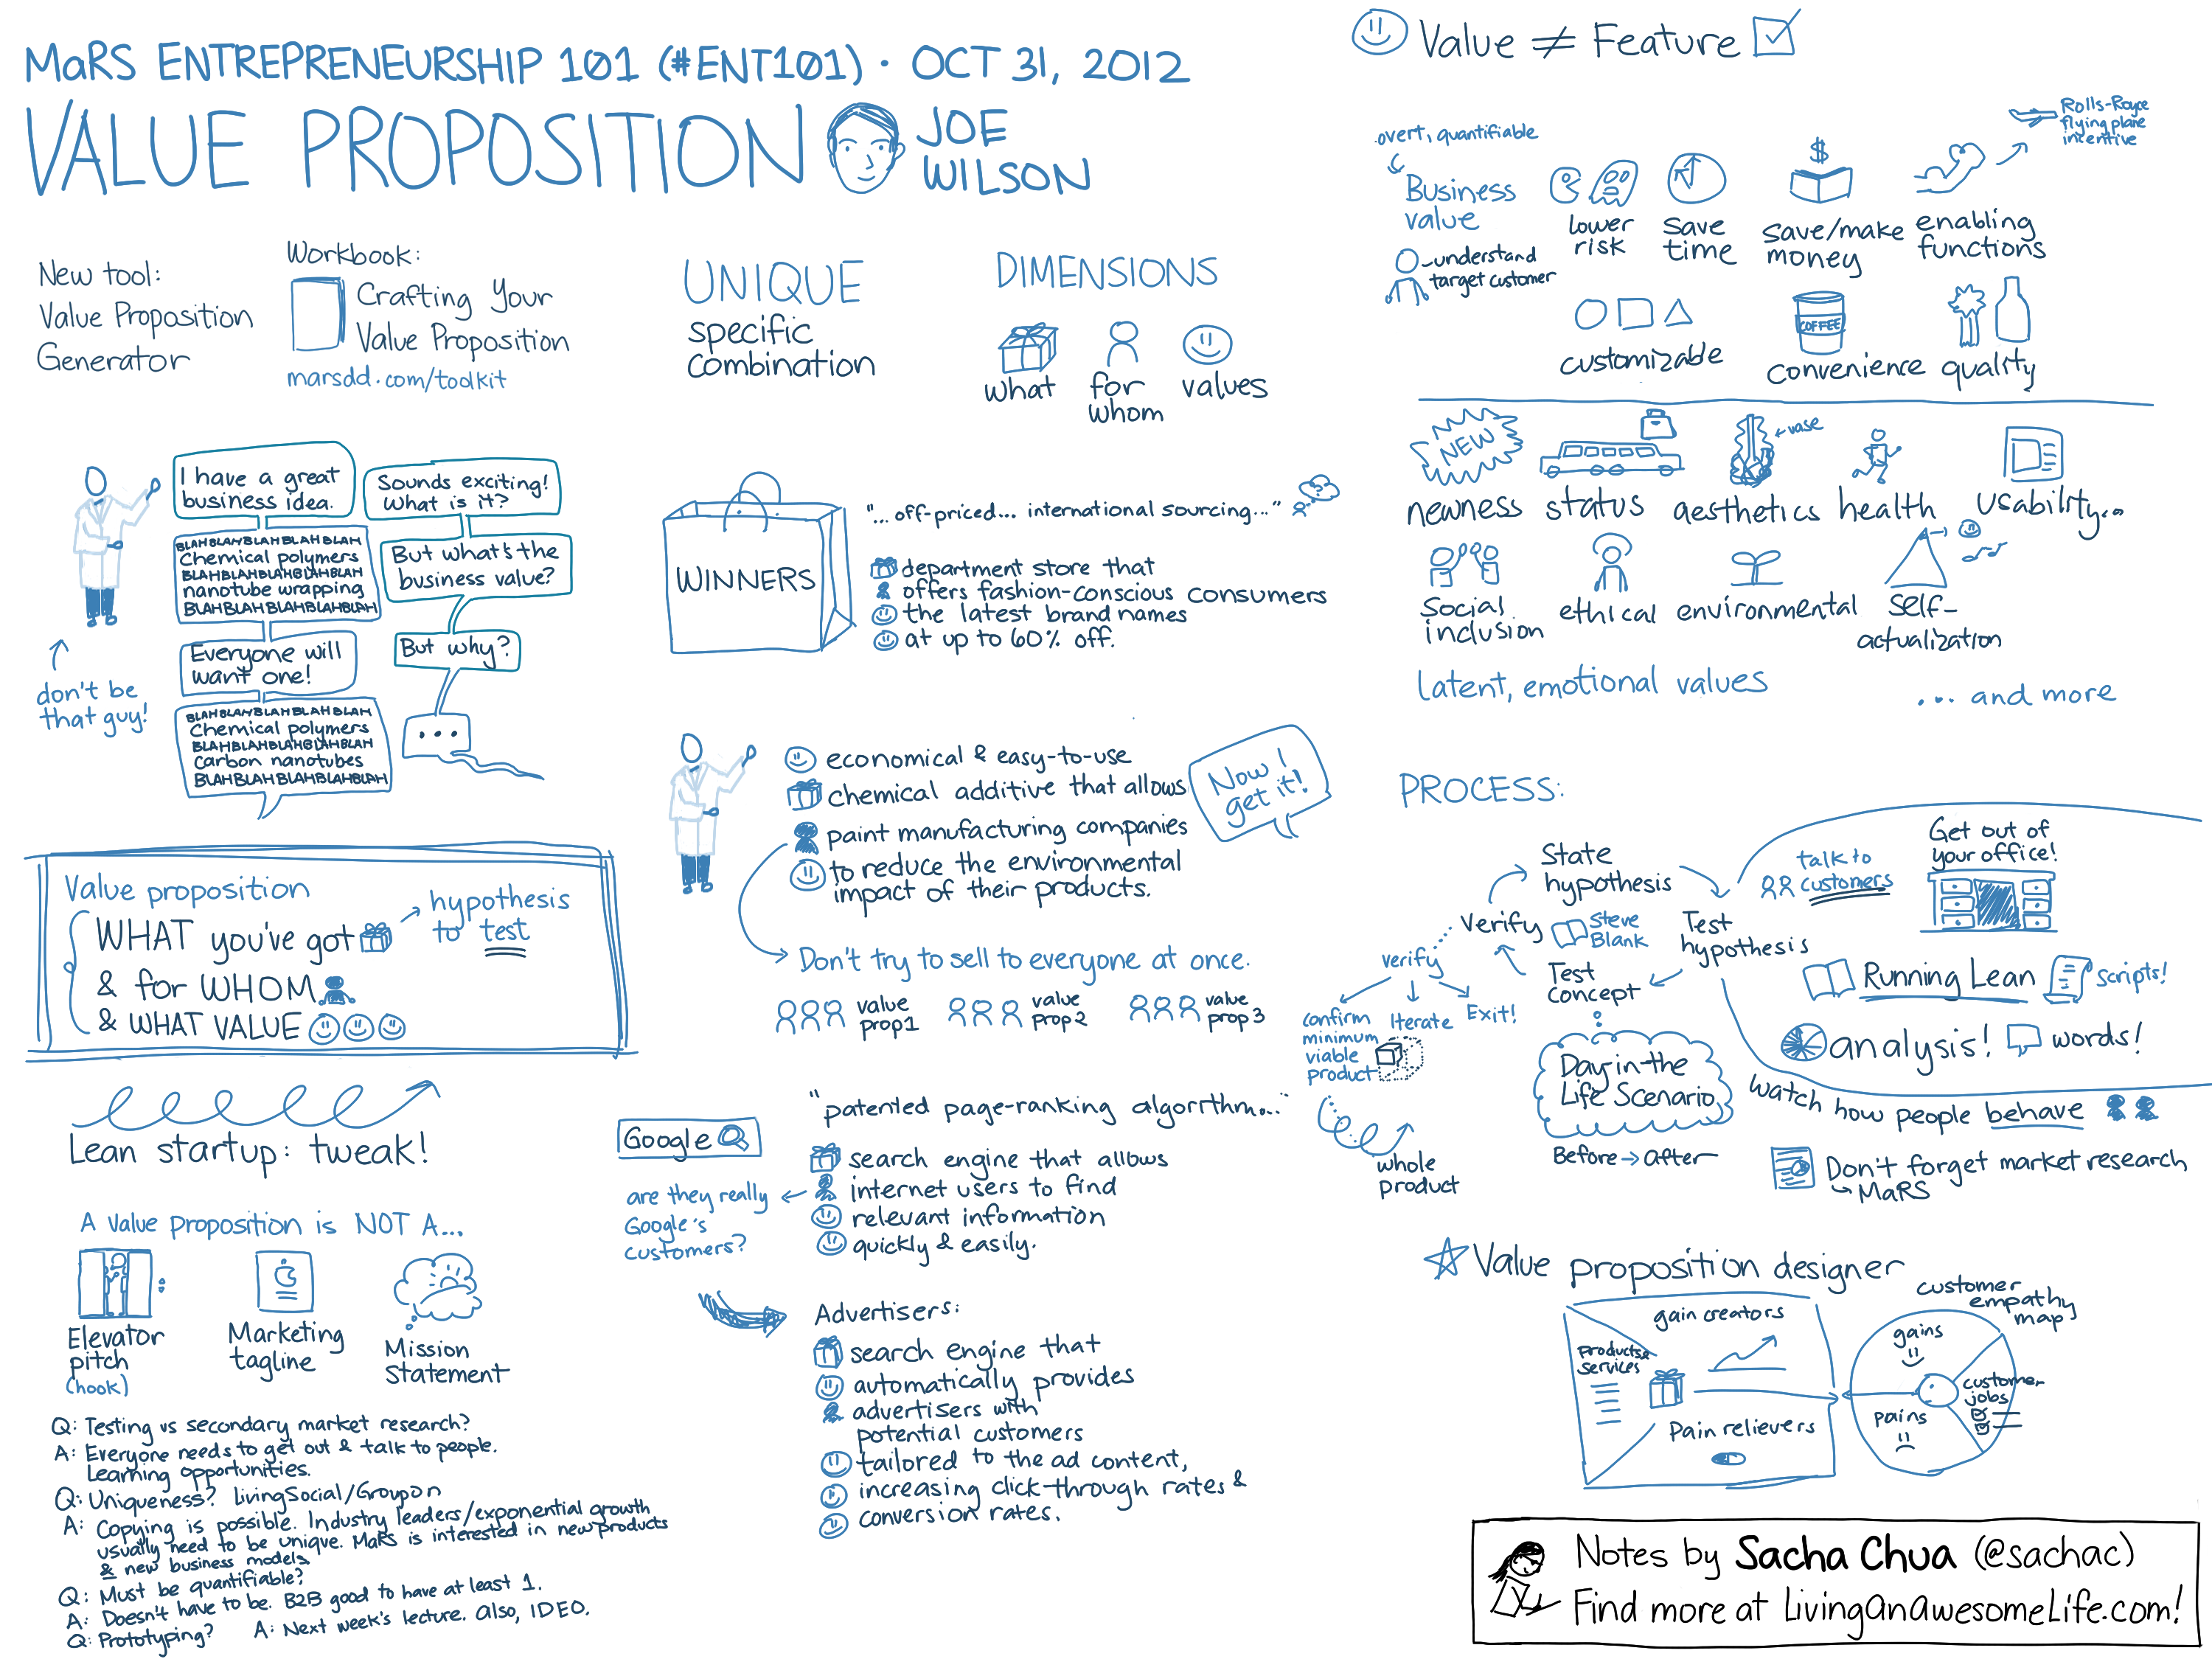 MaRS ENTREPRENEURSHIP 101 (#ENT101) · OCT 31, 2012
VALUE PROPOSITION
JOE
WILSON
New tool:
Value Proposition
Generator
Workbook:
Crafting Your
Value Proposition
marsdd.com/toolkit
UNIQUE
specific
combination
DIMENSIONS
what
for
whom
values
I have a great
business idea.
Sounds exciting!
What is it?
BLAHBLAHBLAHBLAHBLAH
Chemical polymers
BLAHBLAHBLAHBLAHBLAH
nanotube wrapping
BLAHBLAHBLAHBLAHBLAH
But what's the
business value?
Everyone will
want one!
But why?
BLAHBLAHBLAHBLAHBLAH
Chemical polymers
BLAHBLAHBLAHBLAHBLAH
carbon nanotubes
BLAHBLAHBLAHBLAHBLAH
...
don't be
that guy!
Value proposition
WHAT you've got
& for WHOM
& WHAT VALUE
hypothesis
to test
Lean startup: tweak!
A value proposition is NOT A...
Elevator
pitch
(hook)
Marketing
tagline
Mission
Statement
Q: Testing vs secondary market research?
A: Everyone needs to get out & talk to people.
Learning opportunities.
Q: Uniqueness? LivingSocial/Groupon
A: Copying is possible. Industry leaders/exponential growth
usually need to be unique. MaRS is interested in new products
& new business models
Q: Must be quantifiable?
A: Doesn't have to be. B2B good to have at least 1.
Q: Prototyping? A: Next week's lecture. Also, IDEO.
WINNERS
"...off-priced... international sourcing..."
department store that
offers fashion-conscious consumers
the latest brand names
at up to 60% off.
economical & easy-to-use
chemical additive that allows
paint manufacturing companies
to reduce the environmental
impact of their products.
Now I
get it!
Don't try to sell to everyone at once.
value
prop1
value
prop2
value
prop3
Google
"patented page-ranking algorithm..."
search engine that allows
internet users to find
relevant information
quickly & easily.
are they really
Google's
customers?
Advertisers:
search engine that
automatically provides
advertisers with
potential customers
tailored to the ad content,
increasing click-through rates &
conversion rates.
Value ≠ Feature
overt, quantifiable
Business
value
understand
target customer
lower
risk
save
time
$
save/make
money
enabling
functions
Rolls-Royce
flying plane
incentive
customizable
COFFEE
convenience
quality
NEW
newness
status
vase
aesthetics
health
usability...
social
inclusion
ethical
environmental
self-
actualization
latent, emotional values
... and more
PROCESS:
State
hypothesis
Test
hypothesis
Test
concept
Verify
Steve
Blank
verify
confirm
minimum
viable
product
Iterate
Exit!
whole
product
Day-in-the
Life Scenario
Before → after
talk to
customers
Get out of
your office!
Running Lean
scripts!
analysis!
words!
watch how people behave
Don't forget market research
MaRS
Value proposition designer
gain creators
products &
services
Pain relievers
customer
empathy
map
gains
pains
customer
jobs
Notes by Sacha Chua (@sachac)
Find more at LivingAnAwesomeLife.com!